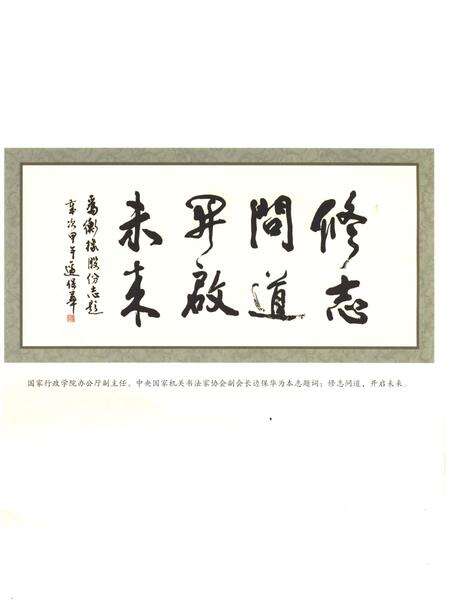 修志
問道
開啟
未来
為衡橡股份志題
歲次甲午邊保華
国家行政学院办公厅副主任、中央国家机关书法家协会副会长边保华为本志题词：修志问道，开启未来。